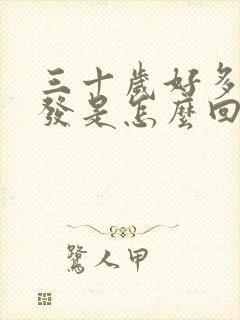 三十歲好多
發是怎麼回
鷺人甲